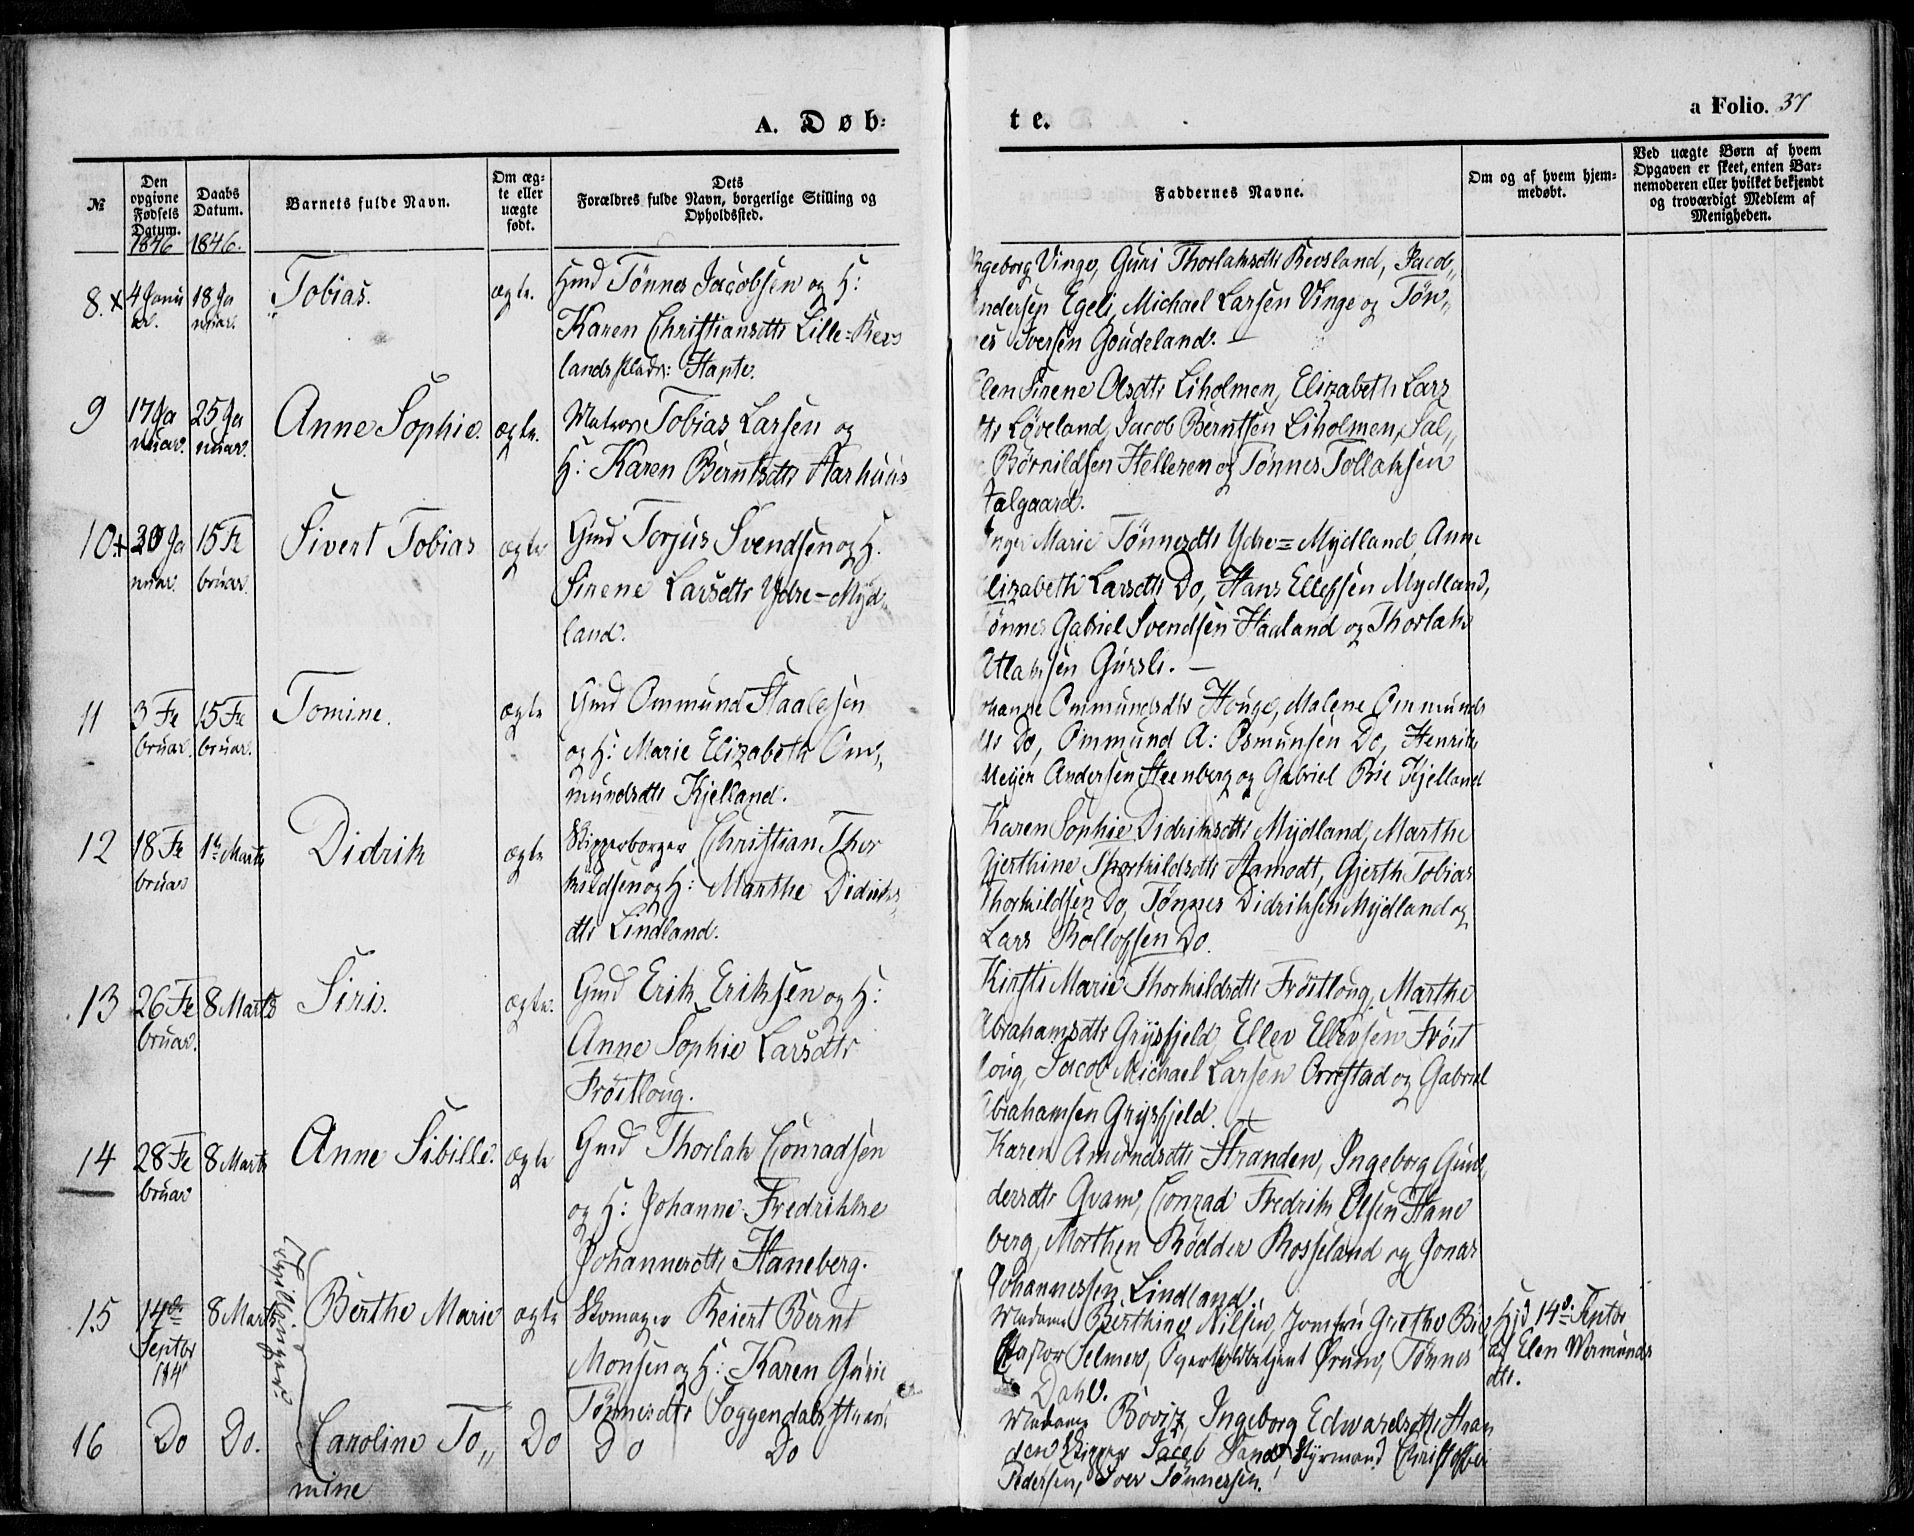 A. Døb-
te.
a Folio. 37
№
Den opgivne Fødsels Datum.
1846
Daabs Datum.
1846.
Barnets fulde Navn.
Om ægte eller uægte født.
Dets
Forældres fulde Navn, borgerlige Stilling og
Opholdssted.
Faddernes Navne.
Om og af hvem hjem-
medøbt.
Ved uægte Børn af hvem
Opgaven er skeet, enten Bar-
nemoderen eller hvilket bekjendt
og troværdigt Medlem af
Menigheden.
8. x 4 Janu 18 Ja Tobias. ægte. Gmd Tønnes Jacobsen og H:
ar. nuar. Karen Christiansdtr Lille-Revs
lands Plads: Hapte.
Ingeborg Vinge, Guri Thorlaksdtr Revsland, Jacob
Andersen Egeli, Michael Larsen Vinge og Tøn„
nes Iversen Goudeland. —
9 17 Ja 25 Ja Anne Sophie. ægte. Matros Tobias Larsen og
nuar. nuar. H: Karen Berntsdtr Aarhuus
Elen Sirene Olsdtr Liholmen, Elizabeth Lars
dtr Løveland, Jacob Berntsen Liholmen, Sal„
Børnildsen Helleren og Tønnes Tollaksen
Dalgaard.
10 + 20 Ja 15 Fe Sivert Tobias ægte Gmd Torjus Svendsen og H.
nuar. bruar. Sirene Larsdtr Ydre-Myd„
land.
Inger Marie Tønnesdtr Ydre=Mydland, Anne
Elizabeth Larsdtr Do, Hans Ellefsen Mydland,
Tønnes Gabriel Svendsen Haaland og Thorlak
Atlaksen Gursli. —
11 3 Fe 15 Fe Tomine. ægte Gmd Ommund Staalesen
bruar. bruar. og H: Marie Elizabeth Om„
mundsdtr Kjelland.
Johanne Ommundsdtr Houge, Malene Ommunds
dtr Do, Ommund A: Osmunsen Do, Henrik
Meyer Andersen Steenberg og Gabriel Brie Kjelland
12 18 Fe 1te Marts Didrik ægte Skipperborger Christian Thor
bruar kildsen og H: Marthe Didriks„
dtr Lindland.
Karen Sophie Didriksdtr Mydland, Marthe
Gjerthine Thorkildsdtr Aamodt, Gjerth Tobias
Thorkildsen Do, Tønnes Didriksen Mydland og
Lars Rollofsen Do.
13 26 Fe 8 Marts Siri. ægte. Gmd Erik Eriksen og H:
bruar. Anne Sophie Larsdtr
Frøitlong.
Kirsti Marie Thorkildsdtr Frøitlong, Marthe
Abrahamsdtr Grysfjeld, Ellev Ellevsen Frøit
long, Jacob Michael Larsen Orrestad og Gabriel
Abrahamsen Grysfjeld.
14 28 Fe 8 Marts Anne Sibille. ægte Gmd Thorlak Conradsen
bruar og H: Johanne Fredrikke
Johannesdtr Haneberg.
Karen Amundsdtr Stranden, Ingeborg Gun„
dersdtr Qvam, Conrad Fredrik Olsen Hane
berg, Morthen Rødder Rosseland og Jonas
Johannessen Lindland.
Tvillinger.
15 14de 8 Marts Berthe Marie ægte Skomager Reiert Bernt
Septbr Monsen og H: Karen Gurie
184 Tønnesdtr Soggendalsstrand
Madame Berthine Nilsen, Jomfru Grethe Brie
Pastor Selmer, Overtoldbetjent Ørum, Tønnes
Dahl.
Hjd 14d. Septbr
af Elen Wermunds
dtr.
16 Do Do. Caroline To„ Do Do Do
mine
Madame Bovitz, Ingeborg Edwardsdtr Stran
den Skipper Jacob Sand, Styrmand Christoffer
Pedersen, Iver Tønnessen.